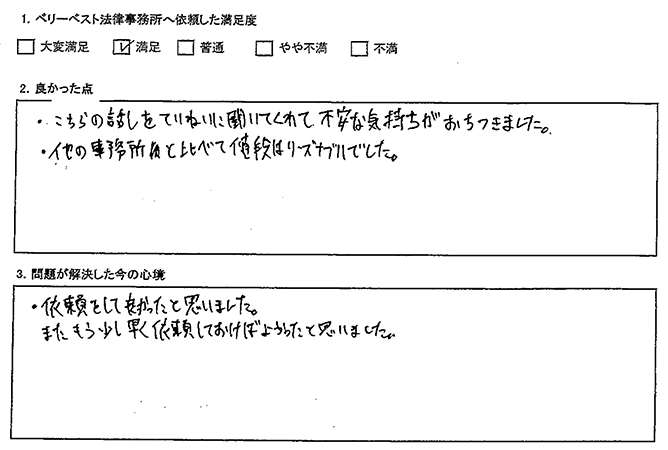 1. ベリーベスト法律事務所へ依頼した満足度
□ 大変満足 ☑ 満足 □ 普通 □ やや不満 □ 不満
2. 良かった点
・こちらの話しをていねいに聞いてくれて、不安な気持ちがおちつきました。
・他の事務所と比べて値段はリーズナブルでした。
3. 問題が解決した今の心境
・依頼をして良かったと思いました。
またもう少し早く依頼しておけばよかったと思いました。